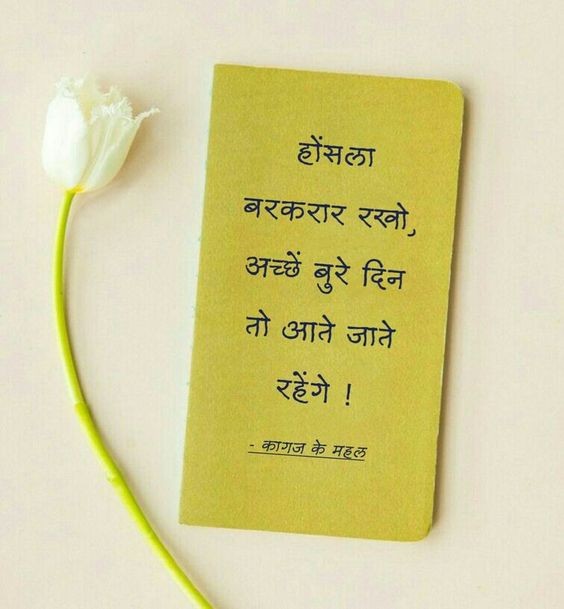 होंसला
बरकरार रखो,
अच्छें बुरे दिन
तो आते जाते
रहेंगे !
- कागज के महल